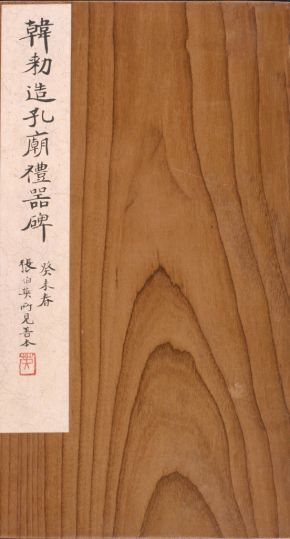 韓勅造孔廟禮器碑
癸未春
張伯英所見善本